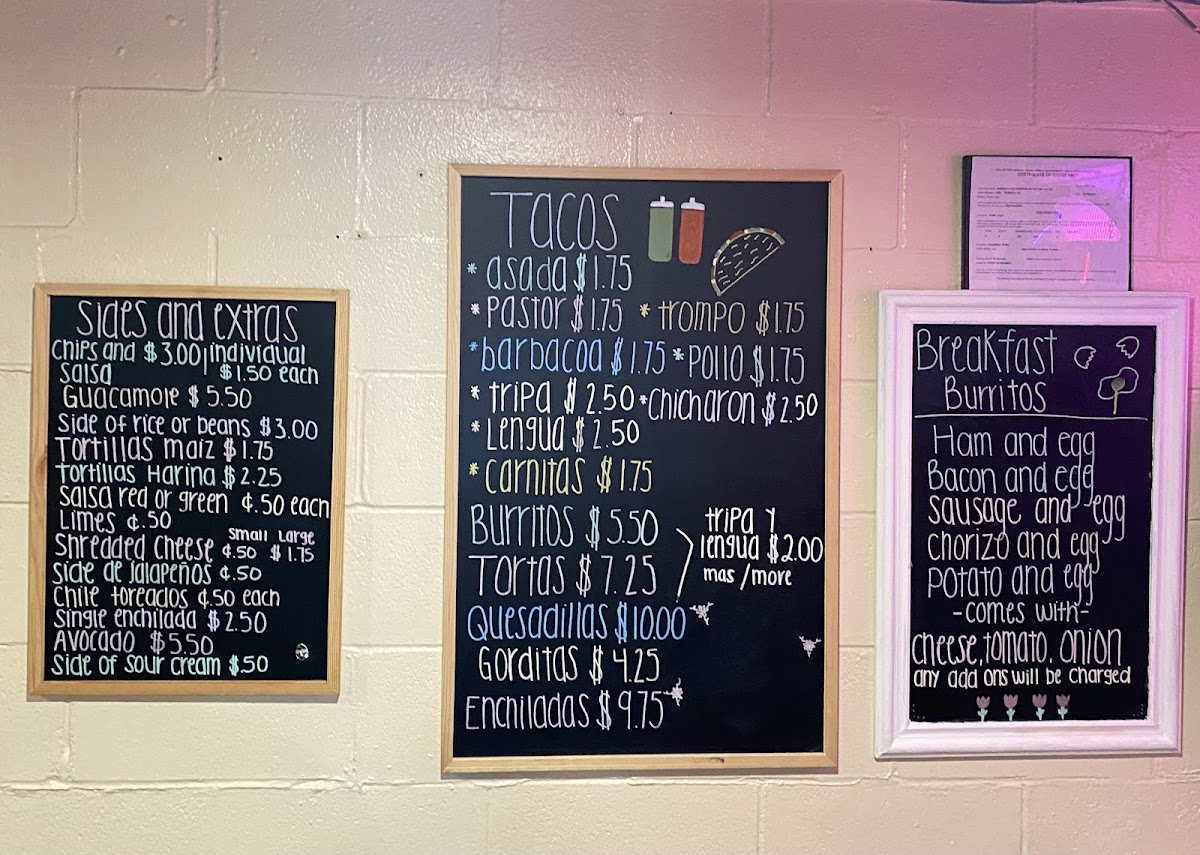 Sides and extras
Chips and $3.00 | individual
Salsa $1.50 each
Guacamole $5.50
Side of rice or beans $3.00
Tortillas maiz $1.75
Tortillas Harina $2.25
Salsa red or green ¢.50 each
Limes ¢.50
Small Large
Shredded Cheese ¢.50 $1.75
Side de Jalapeños ¢.50
Chile toreados ¢.50 each
Single enchilada $2.50
Avocado $5.50
Side of sour cream $.50
Tacos
* asada $1.75
* Pastor $1.75 * trompo $1.75
* barbacoa $1.75 * Pollo $1.75
* tripa $2.50 * Chicharon $2.50
* Lengua $2.50
* Carnitas $1.75
Burritos $5.50
Tortas $7.25
tripa y
lengua $2.00
mas /more
Quesadillas $10.00
Gorditas $4.25
Enchiladas $9.75
CERTIFICATE OF OCCUPANCY
Breakfast
Burritos
Ham and egg
Bacon and egg
Sausage and egg
Chorizo and egg
Potato and egg
-comes with-
cheese, tomato, onion
any add ons will be charged